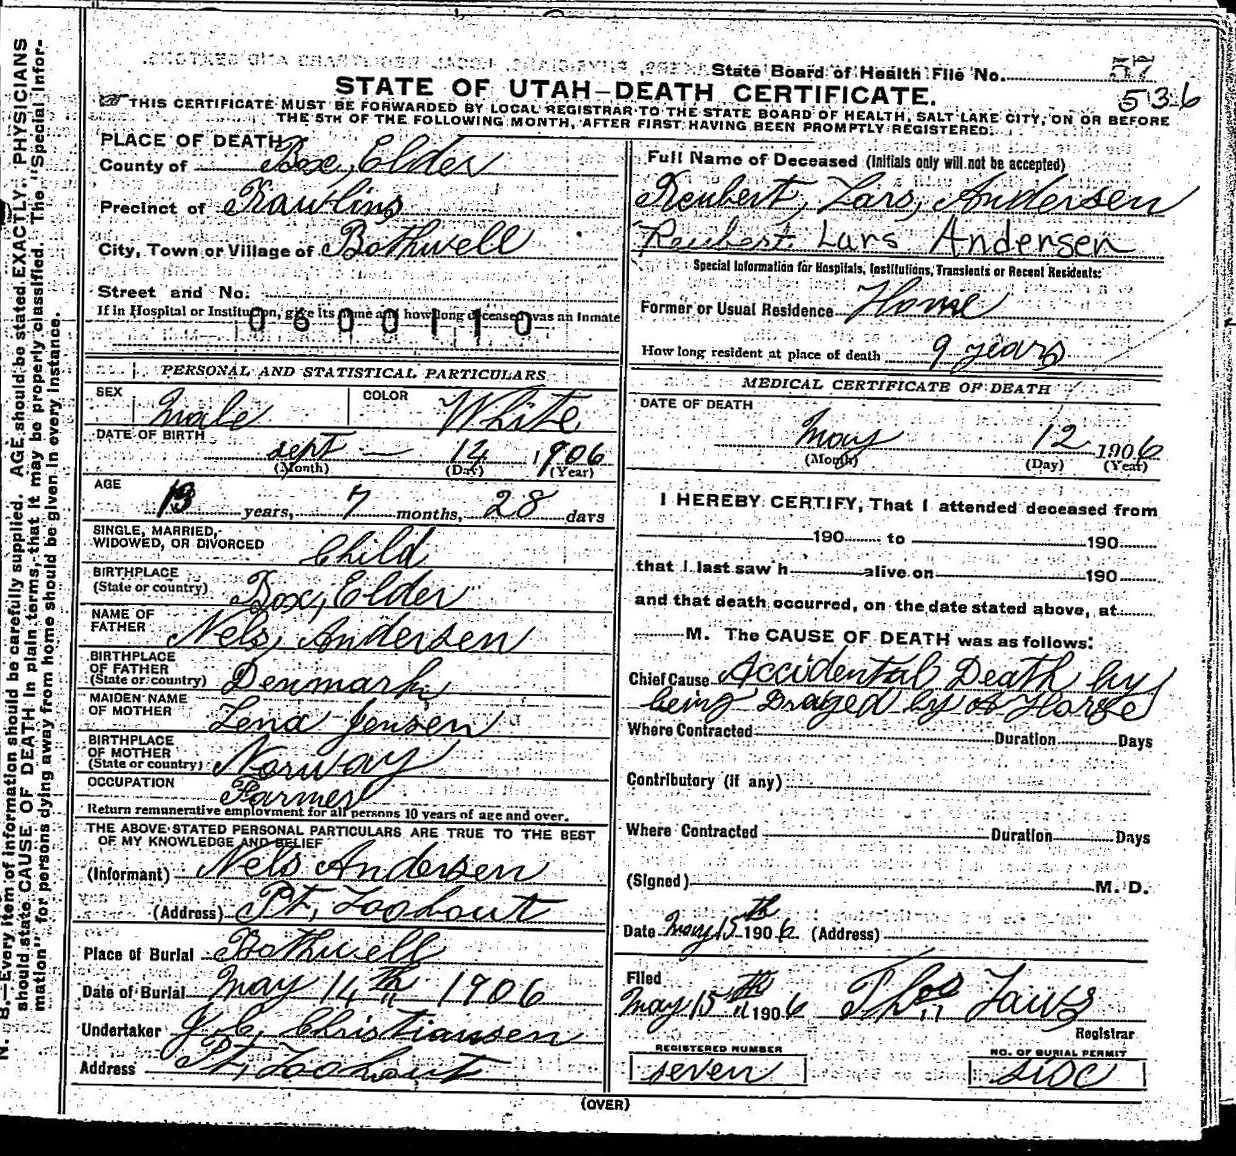 State Board of Health File No. 57
536
STATE OF UTAH—DEATH CERTIFICATE.
THIS CERTIFICATE MUST BE FORWARDED BY LOCAL REGISTRAR TO THE STATE BOARD OF HEALTH, SALT LAKE CITY, ON OR BEFORE
THE 5TH OF THE FOLLOWING MONTH, AFTER FIRST HAVING BEEN PROMPTLY REGISTERED.
PLACE OF DEATH
County of Box, Elder
Precinct of Rawlins
City, Town or Village of Bothwell
Street and No.
If in Hospital or Institution, give its name and how long deceased was an Inmate
0600110
PERSONAL AND STATISTICAL PARTICULARS
SEX Male COLOR White
DATE OF BIRTH sept — 14 1906
(Month) (Day) (Year)
AGE 13 years, 7 months, 28 days
SINGLE, MARRIED,
WIDOWED, OR DIVORCED Child
BIRTHPLACE
(State or country) Box, Elder
NAME OF
FATHER Nels, Andersen
BIRTHPLACE
OF FATHER
(State or country) Denmark
MAIDEN NAME
OF MOTHER Lena Jensen
BIRTHPLACE
OF MOTHER
(State or country) Norway
OCCUPATION Farmer
Return remunerative employment for all persons 10 years of age and over.
THE ABOVE STATED PERSONAL PARTICULARS ARE TRUE TO THE BEST
OF MY KNOWLEDGE AND BELIEF
(Informant) Nels Andersen
(Address) Pt, Lookout
Place of Burial Bothwell
Date of Burial May 14th 1906
Undertaker J. C. Christiansen
Address Pt, Lookout
Full Name of Deceased (Initials only will not be accepted)
Reubert, Lars, Andersen
Reubert Lars Andersen
Special Information for Hospitals, Institutions, Transients or Recent Residents:
Former or Usual Residence Home
How long resident at place of death 9 years
MEDICAL CERTIFICATE OF DEATH
DATE OF DEATH
May 12 1906
(Month) (Day) (Year)
I HEREBY CERTIFY, That I attended deceased from
190 to 190
that I last saw h alive on 190
and that death occurred, on the date stated above, at
M. The CAUSE OF DEATH was as follows:
Chief Cause Accidental Death by
being Draged by a Horse
Where Contracted Duration Days
Contributory (if any)
Where Contracted Duration Days
(Signed) M. D.
Date May 15th 1906 (Address)
Filed
May 15th 1906 Thos Laws
Registrar
REGISTERED NUMBER
seven
NO. OF BURIAL PERMIT
(OVER)
N. B.—Every item of information should be carefully supplied. AGE should be stated EXACTLY. PHYSICIANS
should state CAUSE OF DEATH in plain terms, that it may be properly classified. The "Special Infor-
mation" for persons dying away from home should be given in every instance.